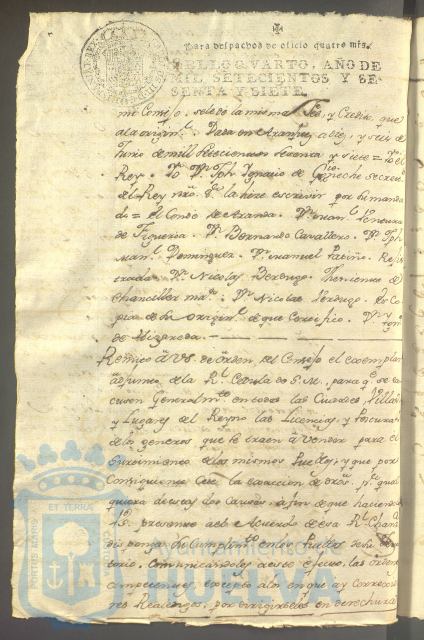 Para despachos de oficio quatro mrs.
SELLO QVARTO, AÑO DE
MIL SETECIENTOS Y SE-
SENTA Y SIETE.
mi Consejo, se le dé la misma Fee, y Credito, que
a la origin.l Dada en Aranjuez a beinte y seis de
Junio de mill setecientos sesenta y siete = Yo el
Rey = Yo Dn. Jph Ignacio de Goieneche secreto.
del Rey nro. Sr. la hice escrivir por su manda
do = el Conde de Aranda. Dn. Man.l Ventura
de Figueroa. Dn. Bernardo Cavallero. Dn. Jph
Man.l Dominguez. Dn. Manuel Patiño. Rejis
trada. Dn. Nicolas Berdugo. Theniente de
Chanciller mor. Dn. Nicolas Verdugo. Es Co
pia de su origin.l de que Certifico. Dn.
de Higareda.
Remito a VS. de orden del Consejo el exemplar
adjunto de la Rl. Cedula de S. M. para q.e se es
cusen Generalm.te en todas las Ciudades, Villas
y Lugares del Reyno las Licencias, y Posturas
de los generos que se traen a vender para el
surtimiento de los mismos Pueblos, y que por
Consiguiente Cese la exaccion de dros. por qual
quiera de estas dos Causas; a fin de que haciendola
VS. presente a el Acuerdo de esa Rl. Chan
disponga su Cumplim.to en los Pueblos de su
torio, comunicandoles a este efecto, las ordenes
competentes, excepto a los en que ay Corregido
res Realengos, por dirigirseles en derechura
PORTUS MARIS
ET TERRAE
Ayuntamiento de
HUELVA